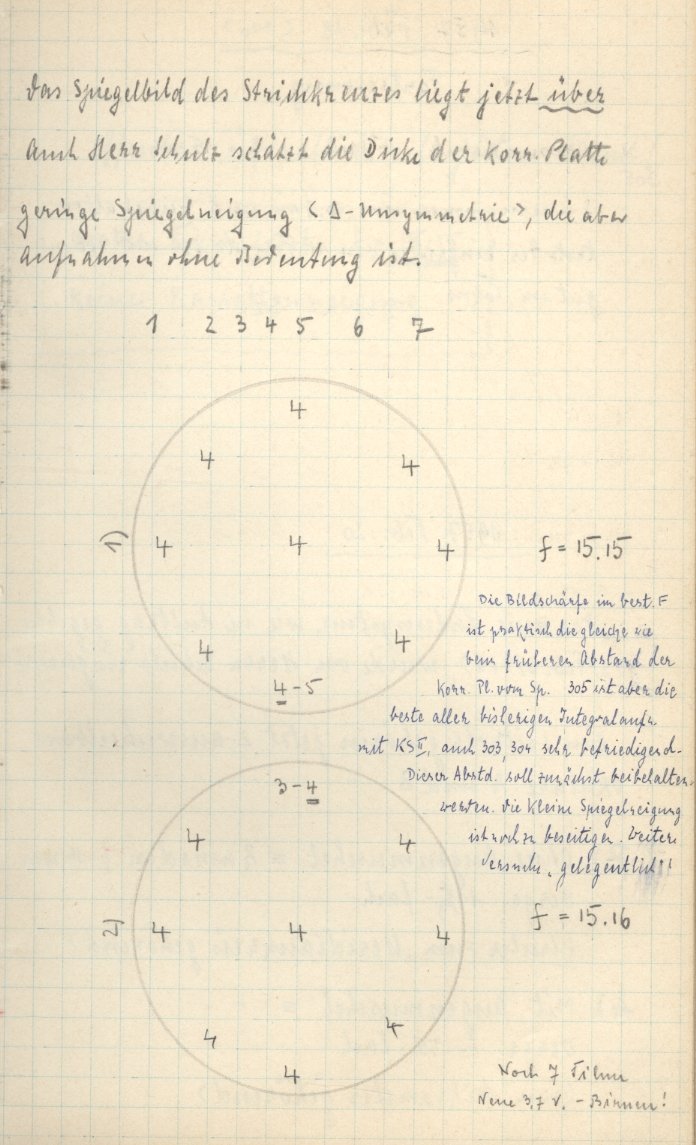 Das Spiegelbild des Strichkreuzes liegt jetzt über
Auch Herr Schulz schätzt die Dicke der Korr. Platte
geringe Spiegelneigung (Δ-Unsymmetrie), die aber
aufnahmen ohne Bedeutung ist.
1 2 3 4 5 6 7
4
4 4
1) 4 4 4 f = 15.15
4 4
4-5
Die Bildschärfe im best. F
ist praktisch die gleiche wie
beim früheren Abstand der
Korr. Pl. vom Sp. 305 ist aber die
beste aller bisherigen Integralaufn.
mit KS II, auch 303, 304 sehr befriedigend.
Dieser Abstd. soll zunächst beibehalten
werden. Die kleine Spiegelneigung
ist noch zu beseitigen. Weitere
Versuche "gelegentlich"!
3-4
4 4
2) 4 4 4 f = 15.16
4 4
4
Noch 7 Filme
Neue 3,7 V. - Birnen!